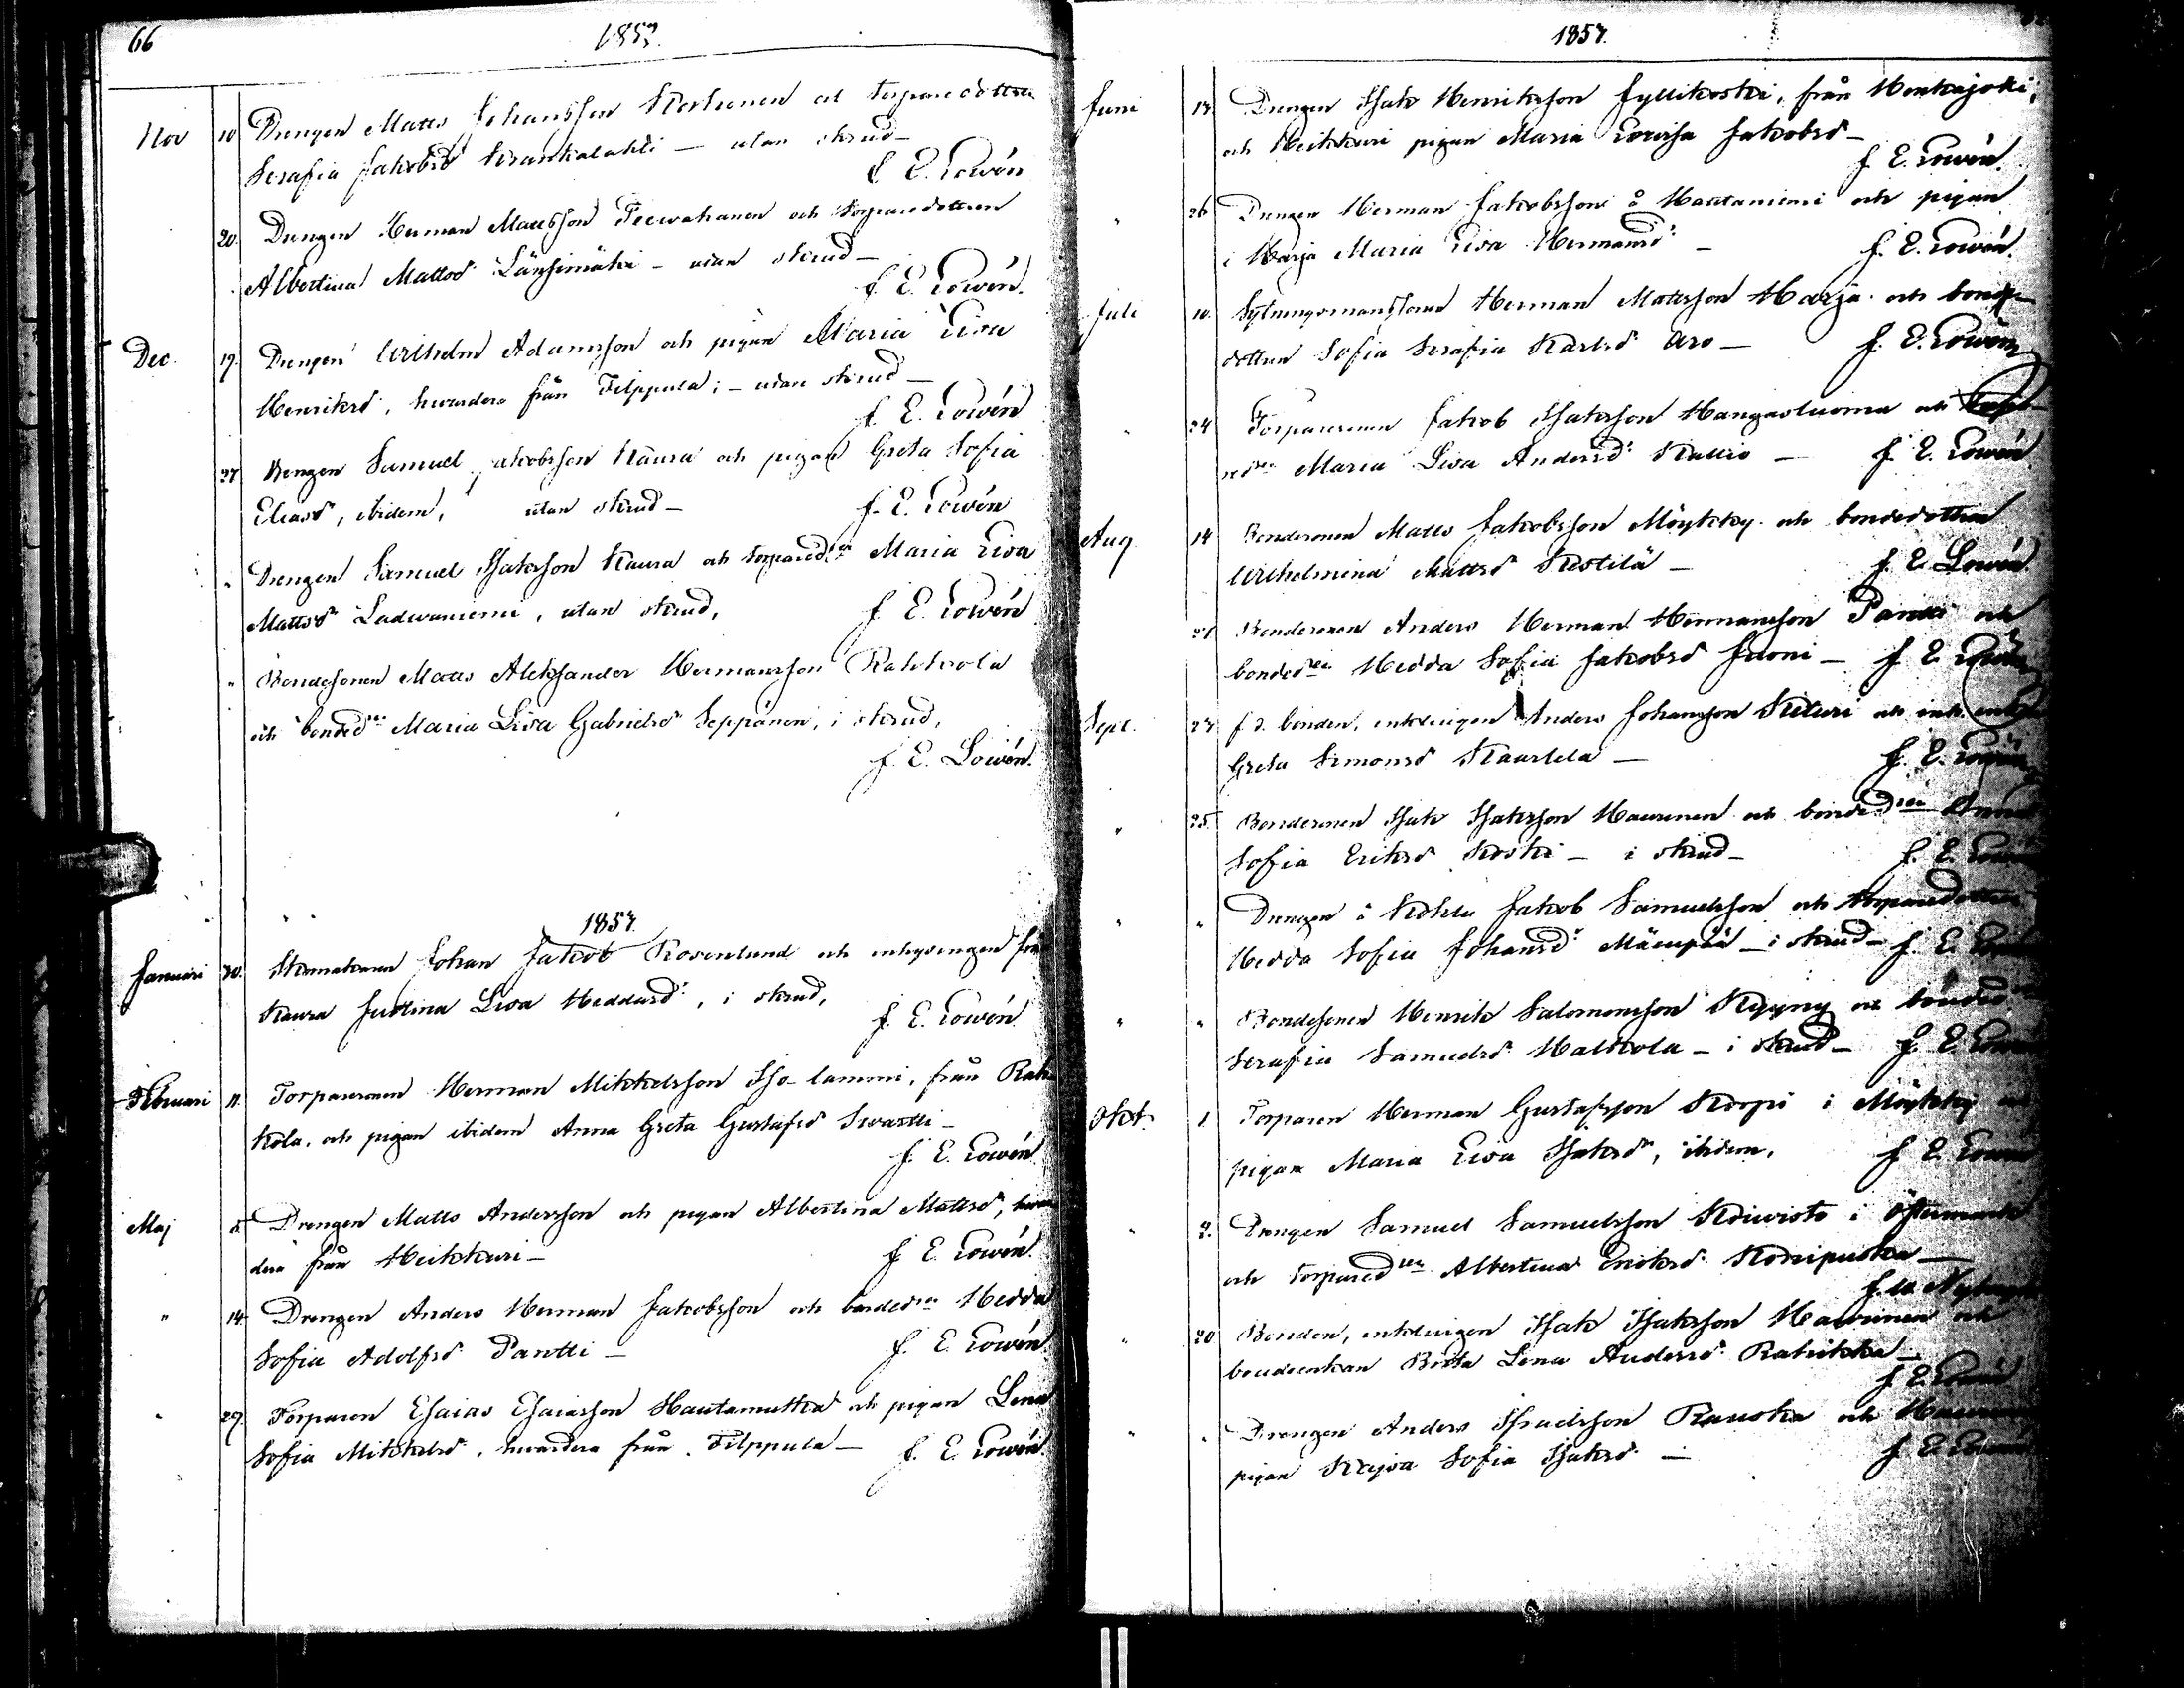 66
1857.
Nov 10 Drengen Matts Johansson Korhonen och torparedottren
Serafia Jakobsd: Krankalahti — utan skrud —
J. E. Lowén
20. Drengen Herman Mattsson Teewahanen och torparedottren
Albertina Mattsd: Länsimäki — utan skrud —
J. E. Lowén.
Dec. 17. Drengen Wilhelm Adamsson och pigan Maria Lisa
Henriksd:, hvardera från Filppula; — utan skrud —
J. E. Lowén
27 Drengen Samuel Jakobsson Kaura och pigan Greta Sofia
Eliasd:, ibidem, utan skrud —
J. E. Lowén
" Drengen Samuel Isaksson Kaura och torpared:en Maria Lisa
Mattsd: Ladwaniemi, utan skrud,
J. E. Lowén
" Bondesonen Matts Aleksander Hermansson Rahkola
och bonded:en Maria Lisa Gabrielsd: Seppänen, i skrud,
J. E. Lowén.
1857.
Januari 30. Johan Jakob Rosenlund och inhysingen från
Kaura Justina Lisa Heddasd:, i skrud,
J. E. Lowén.
Februari 11. Torparesonen Herman Mikkelsson Iso-lammi, från Rah-
kola, och pigan ibidem Anna Greta Gustafsd: Swartti —
J. E. Lowén
Maj 5. Drengen Matts Andersson och pigan Albertina Mattsd:, hvar-
dera från Heikkuri —
J. E. Lowén.
" 14. Drengen Anders Herman Jakobsson och bonded:en Hedda
Sofia Adolfsd: Pantti —
J. E. Lowén.
" 29. Torparen Esaias Esaiasson Hautamutka och pigan Lena
Sofia Mikkelsd:, hvardera från Filppula — J. E. Lowén.
1857.
Juni 13. Drengen Isak Henriksson Jyllikoski, från Honkajoki,
och Heikkuri pigan Maria Lovisa Jakobsd: —
J. E. Lowén.
" 26 Drengen Herman Jakobsson å Hautaniemi och pigan
i Harja Maria Lisa Hermansd: —
J. E. Lowén.
Juli 10. Sytningsmanssonen Herman Matsson Harja och bonde-
dottren Sofia Serafia Karlsd: Aro — J. E. Lowén
" 24 Torparesonen Jakob Isaksson Hangasluoma och
Maria Lisa Andersd: Kallio — J. E. Lowén
Aug 14 Bondesonen Matts Jakobsson Möykky och bondedottren
Wilhelmina Mattsd: Kestilä —
J. E. Lowén
21 Bondesonen Anders Herman Hermansson Pantti och
bonded:en Hedda Sofia Jakobsd: Juoni — J. E. Lowén
Sept. 27 f. d. bonden, enklingen Anders Johansson Kituri och
Greta Simonsd: Kaarlela —
J. E. Lowén
" 25. Bondesonen Isak Isaksson Haurunen och bonded:en
Sofia Eriksd: Koski — i skrud —
J. E. Lowén
" " Drengen å Kohlu Jakob Samuelsson och torparedottren
Hedda Sofia Johansd: Mäenpää — i skrud — J. E. Lowén
" " Bondesonen Henrik Salomonsson Kyyny och bonded:en
Serafia Samuelsd: Halkola — i skrud — J. E. Lowén
Okt. 1. Torparen Herman Gustafsson Korpi i Möykky och
pigan Maria Lisa Isaksd:, ibidem. J. E. Lowén
" 2. Drengen Samuel Samuelsson Koiwisto i Östermark
och torpared:en Albertina Eriksd: Koriipuska —
" 20 Bonden, enklingen Isak Isaksson Haurunen och
bondeenkan Brita Lena Andersd: Rahikka —
J. E. Lowén
" " Drengen Anders Israelsson Rauska och
pigan Kajsa Sofia Isaksd: —
J. E. Lowén